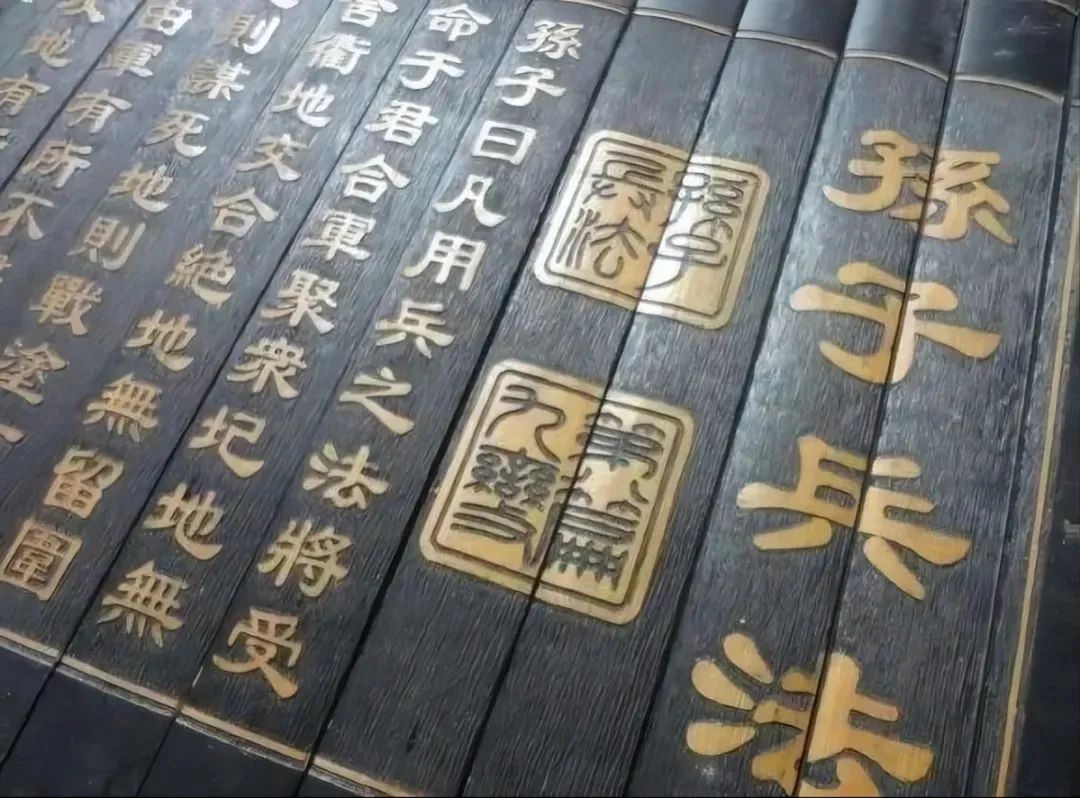 孫子兵法
孫子
兵法
九變
孫子曰凡用兵之法將受
命于君合軍聚衆圮地無
舍衢地交合絕地無留圍
則謀死地則戰塗
由軍有所不
地有